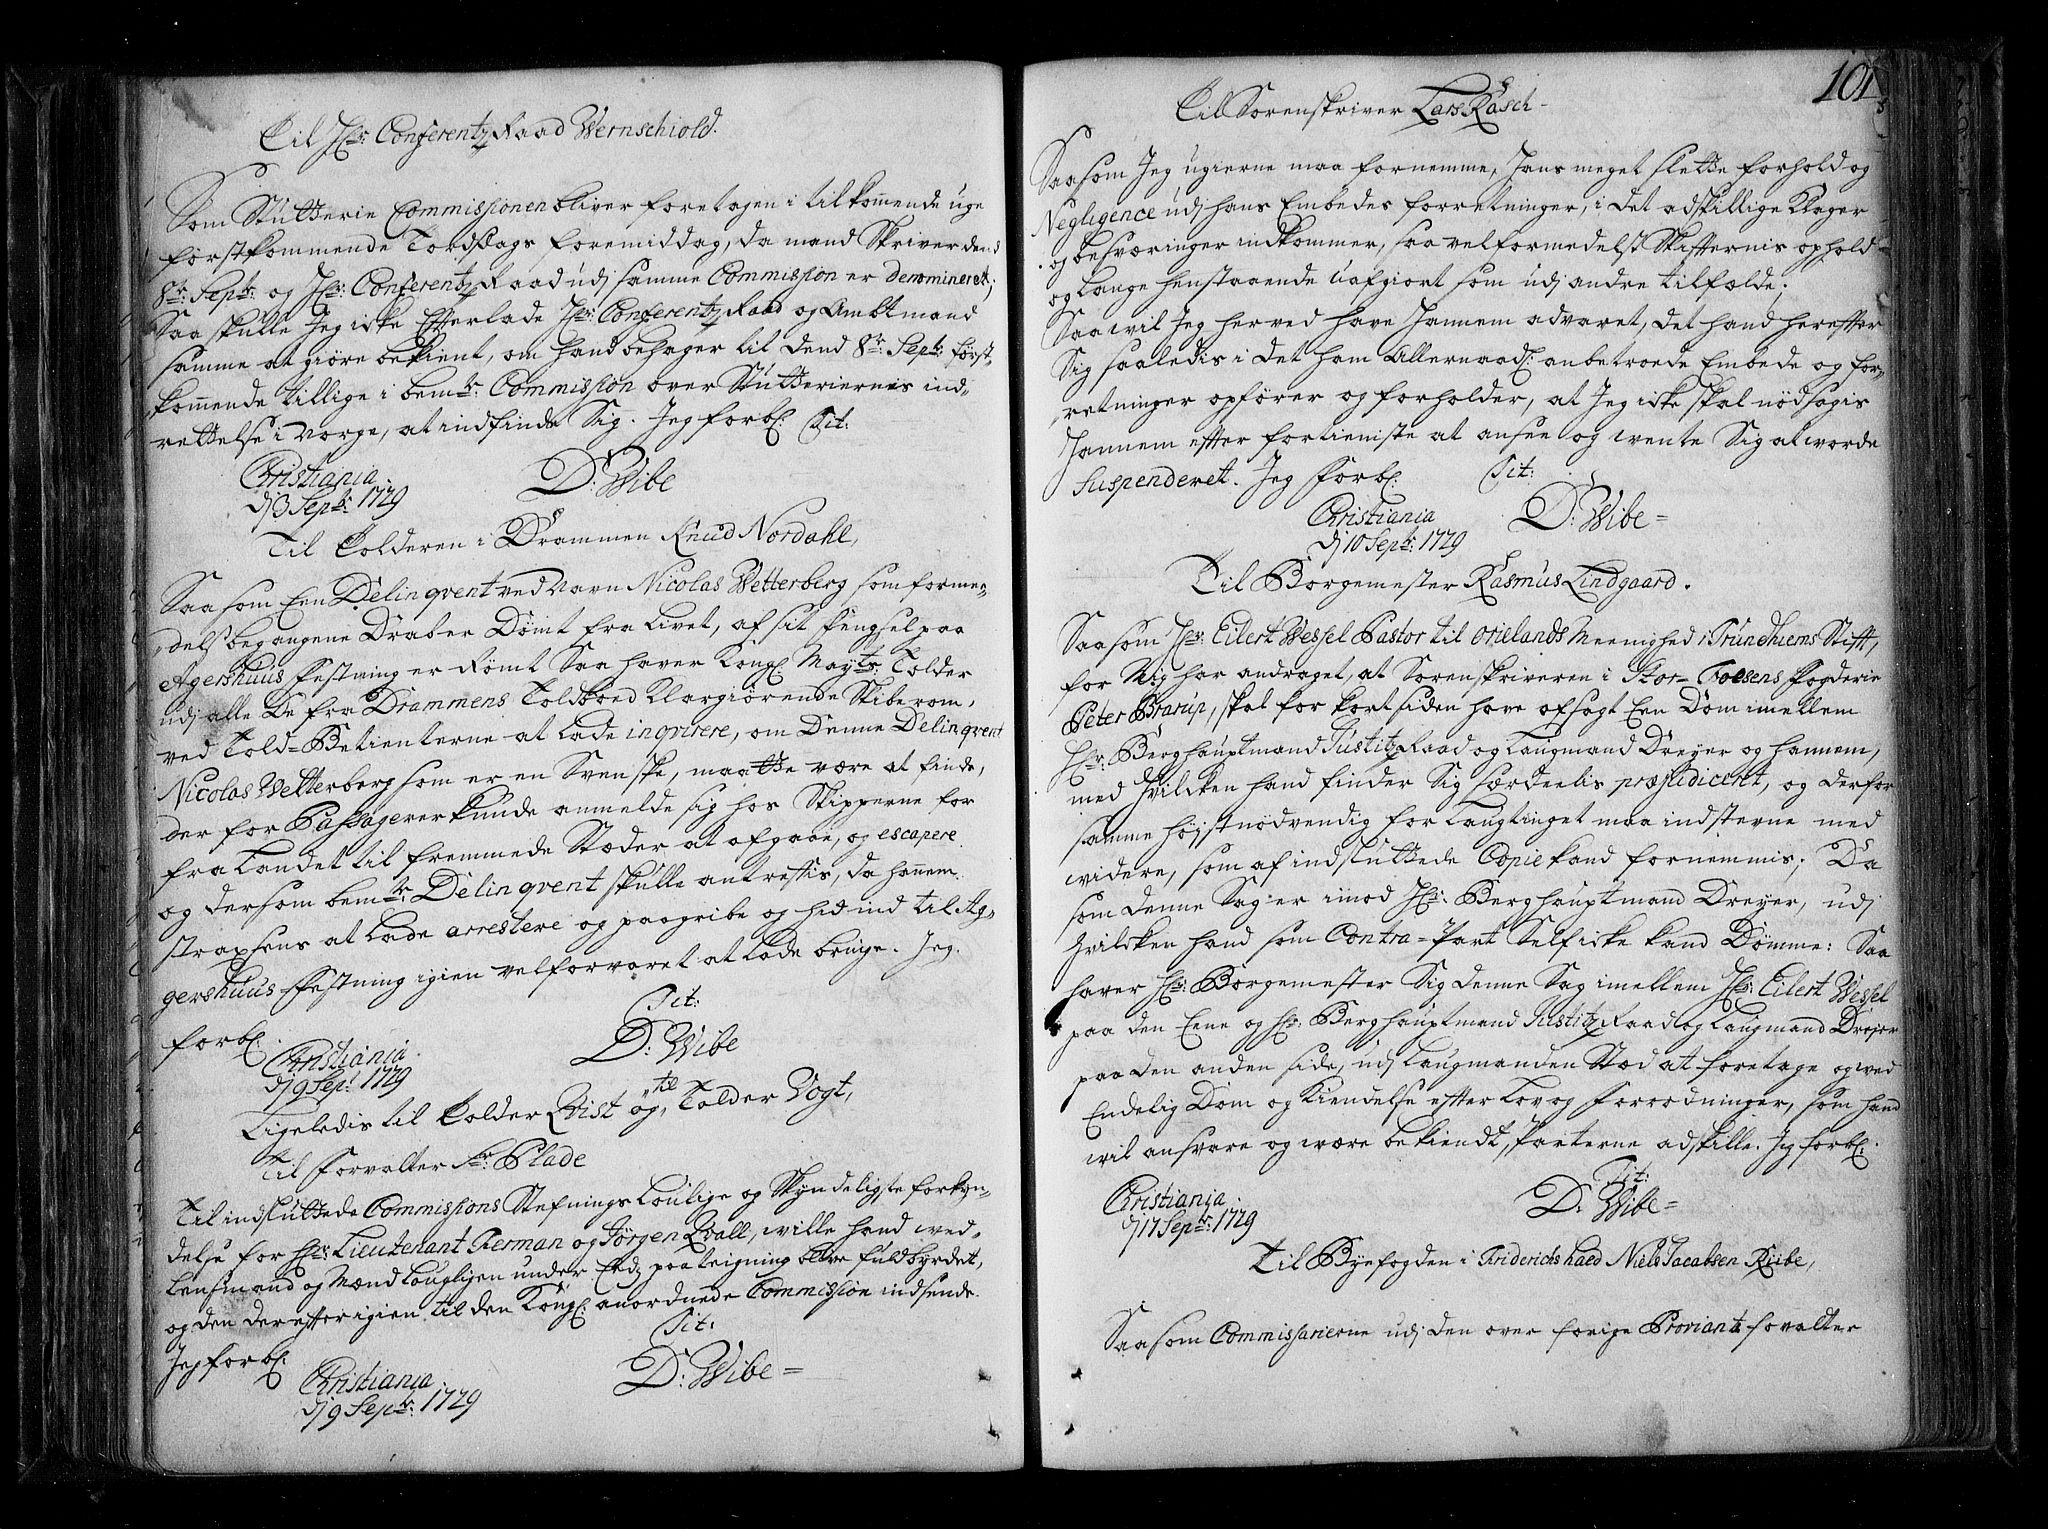 Til Hr: Conferentz Raad Wernschiold.
Som Stutterie Commissionen bliver foretagen i tilkommende uge
førstkommende Torsdags formiddag, da mand Skriver dend
8de: Septr: og Hr: Conferentz Raad udj samme Commission er denomineret;
Saa skulle Jeg icke Efterlade Hr: Conferentz Raad og Ambtmand
samme at giøre bekient, om hand behager til dend 8de: Septr: først-
kommende tillige i bemte: Commission over Stutteriernis ind-
rettelse i Norge, at indfinde Sig. Jeg forbl: Tit:
Christiania
dj 3 Septr: 1729
D: Wibe
Til Tolderen i Drammen Knud Nordahl,
Saasom Een Delinqvent ved Navn Nicolas Wetterberg som forme-
delst begangene Draber Dømt fra Livet, af sit fengsel paa
Agershuus Festning er Rømt Saa haver Kongl Mayts Tolder
udj alle De fra Drammens Toldboed Klargiørende Skiberom,
ved Told-Betienterne at lade inqvirere, om Denne Delinqvent
Nicolas Wetterberg som er en Svenske, maatte være at finde,
der for Passagerer kunde anmelde sig hos Skipperne for
fra Landet til fremmede Stæder at afgaae, og escapere.
og dersom bemte: Delinqvent skulle antreffis, da hannem
strax sens at lade arrestere og paagribe og hid ind til Ag-
gershuus Festning igien velforvaret at lade bringe. Jeg
forbl:
Tit:
Christiania
dj 9 Sept: 1729
D: Wibe
Ligeledis til Tolder Rist og til Tolder Vogt,
Til Forvalter Sr: Plade
Til indsluttede Commissions Stefnings Loulige og Skyndeligste forkyn-
delse for Hr: Lieutenant Perman og Jørgen Qvall, wille hand wed
Lensmand og Mænd Lougligen under Eedz paateigning blive fuldbyrdet,
og den derefter igien til den Kongl: anordnede Commission indsende.
Jeg forbl:
Tit:
Christiania
dj 9 Septr: 1729
D: Wibe=
101
Til Sorenskriver Lars Rasch-
Saasom Jeg ugierne maa fornemme, Hans meget slette forhold og
Negligence udj hans Embedes forretninger, i det adskillige Klager
og besværinger indkommer, saavel formedelst Skifternis ophold
og lange henstaaende uafgiort som udj andre tilfælde;
Saa wil Jeg herved have Hannem advaret, det hand herefter
Sig saaledis i det ham Allernaadl: anbetroede Embede og for-
retninger opfører og forholder, at Jeg icke skal nødsagis
Hannem efter fortieniste at ansee og wente Sig at worde
Suspenderet. Jeg forbl: Tit:
Christiania
dj 10 Septr: 1729
D: Wibe=
Til Borgemester Rasmus Lindgaard.
Saasom Hr: Eilert Wessel Pastor til Ørlands Meenighed i Trundhiems Stift,
for Mig har andraget, at Sorenskriveren i Stor-Fosens Fogderie
Peter Brarup, skal for kort siden have afsagt Een Dom imellem
Hr: Berghauptmand Justitz Raad og Laugmand Dreyer og hannem,
med Hvilcken hand finder Sig særdeelis præjudiceret, og derfor
samme højstnødvendig for Laugtinget maa indstevne med
widere, som af indsluttede Copie kand fornemmis; Da
som denne Sag er imod Hr: Berghauptmand Dreyer, udj
Hvilcken hand som Contra-Part Self icke kand Dømme: Saa
haver Hr: Borgemester Sig denne Sag imellem Hr: Eilert Wessel
paa den Eene og Hr: Berghauptmand Justitz Raad og Laugmand Dreyer
paa den anden side, udj Laugmandens Sted at foretage og wed
Endelig Dom og Kiendelse efter Lov og Forordninger, som hand
wil ansvare og være bekiendt, Parterne adskille. Jeg forbl:
Tit:
Christiania
dj 17 Septr: 1729
D: Wibe=
Til Byefogden i Friderichshald Niels Jacobsen Riibe,
Saasom Commissarierne udj den over forige Proviantz forvalter